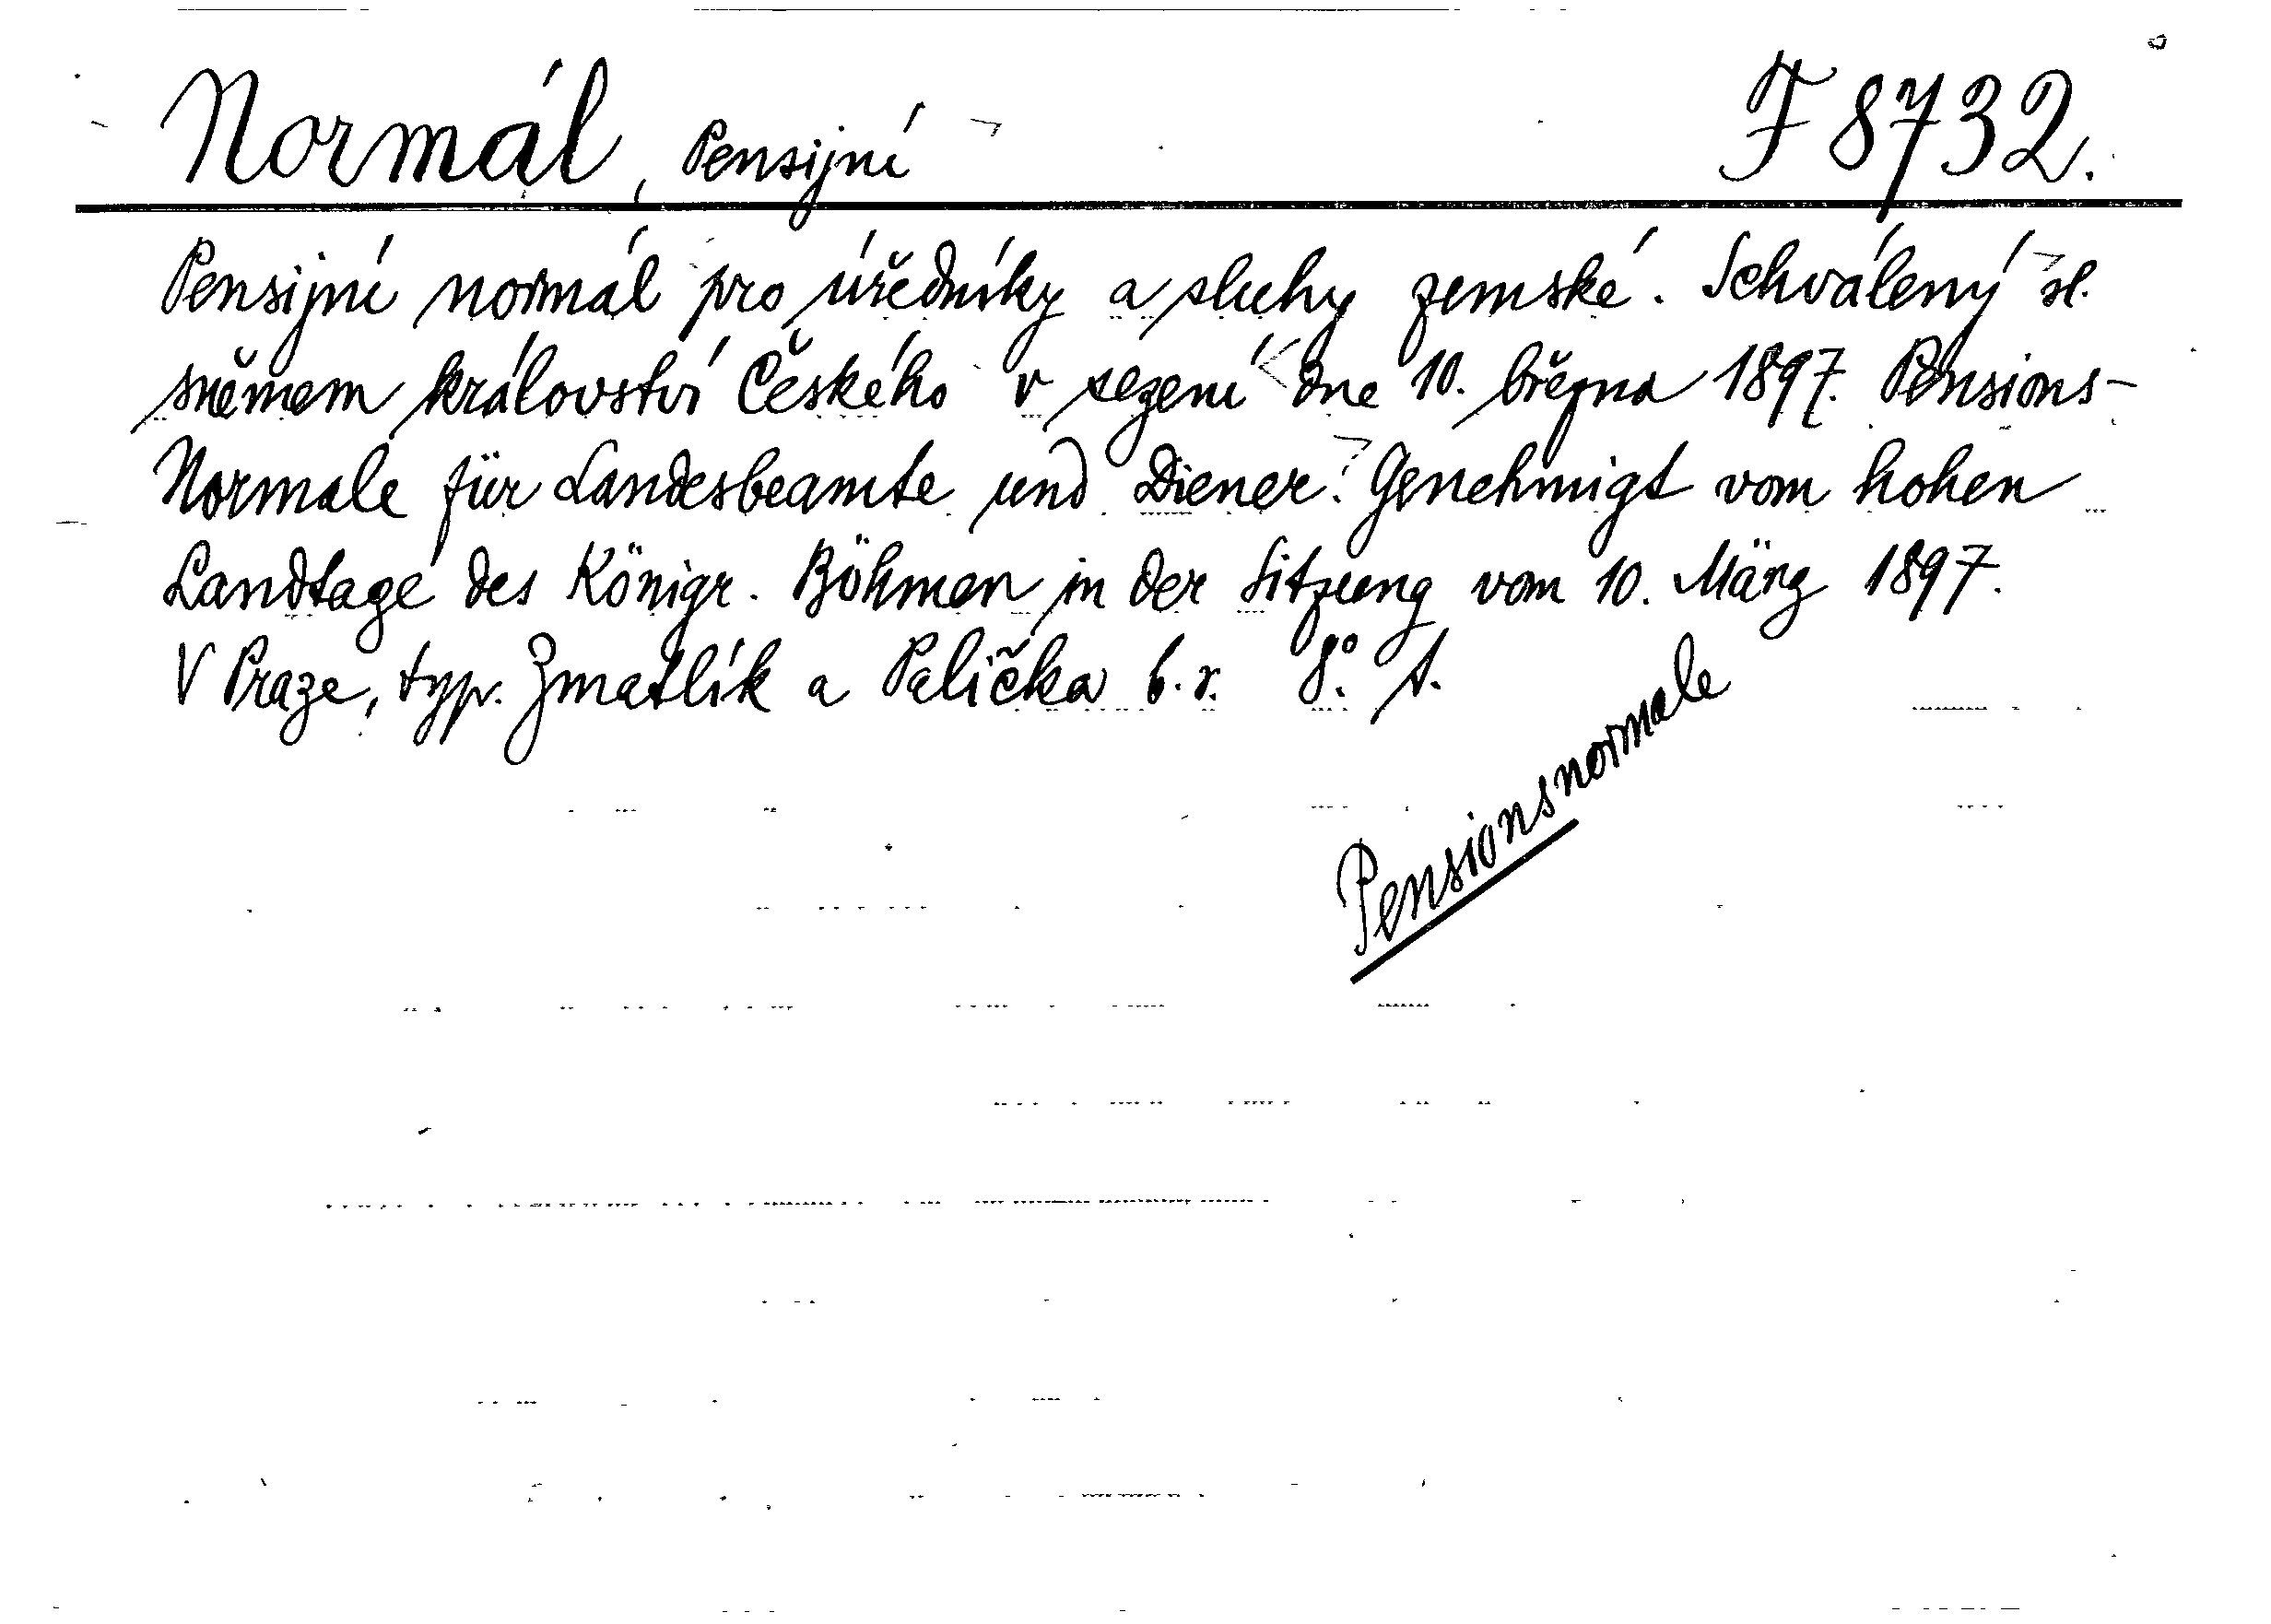 Normál, Pensijní F 8732.
Pensijní normál pro úředníky a sluhy zemské. Schválený sl.
sněmem království Českého v sezení dne 10. března 1897. Pensions-
Normale für Landesbeamte und Diener. Genehmigt vom hohen
Landtage des Königr. Böhmen in der Sitzung vom 10. März 1897.
V Praze, typ. Zmatlík a Palička b. r. 8°. A.
Pensionsnormale